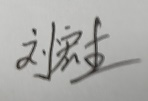 刘宏生